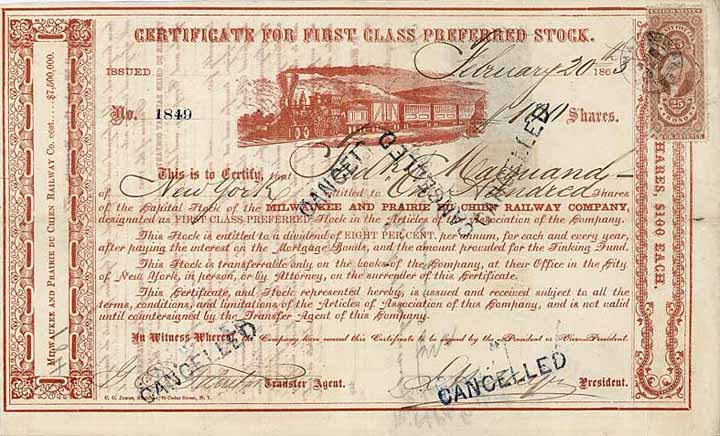 CERTIFICATE FOR FIRST CLASS PREFERRED STOCK.
ISSUED February 20th 186
No. 1849
100 Shares.
This is to Certify, that Marquand
of New York entitled to One Hundred Shares
of the Capital Stock of the MILWAUKEE AND PRAIRIE DU CHIEN RAILWAY COMPANY,
designated as FIRST CLASS PREFERRED Stock in the Articles of Association of the Company.
This Stock is entitled to a dividend of EIGHT PER CENT, per annum, for each and every year,
after paying the interest on the Mortgage Bonds, and the amount provided for the Sinking Fund.
This Stock is transferrable only on the books of the Company, at their Office in the City
of New York, in person, or by Attorney, on the surrender of this Certificate.
This Certificate, and Stock represented hereby, is issued and received subject to all the
terms, conditions, and limitations of the Articles of Association of this Company, and is not valid
until countersigned by the Transfer Agent of this Company.
In Witness Whereof, Company have caused this Certificate to be signed by the President or Vice-President.
Transfer Agent.
President.
MILWAUKEE AND PRAIRIE DU CHIEN RAILWAY CO. cost....$7,500,000.
SHARES, $100 EACH.
25
CANCELLED
CANCELLED
CANCELLED
CANCELLED
CANCELLED
CANCELLED